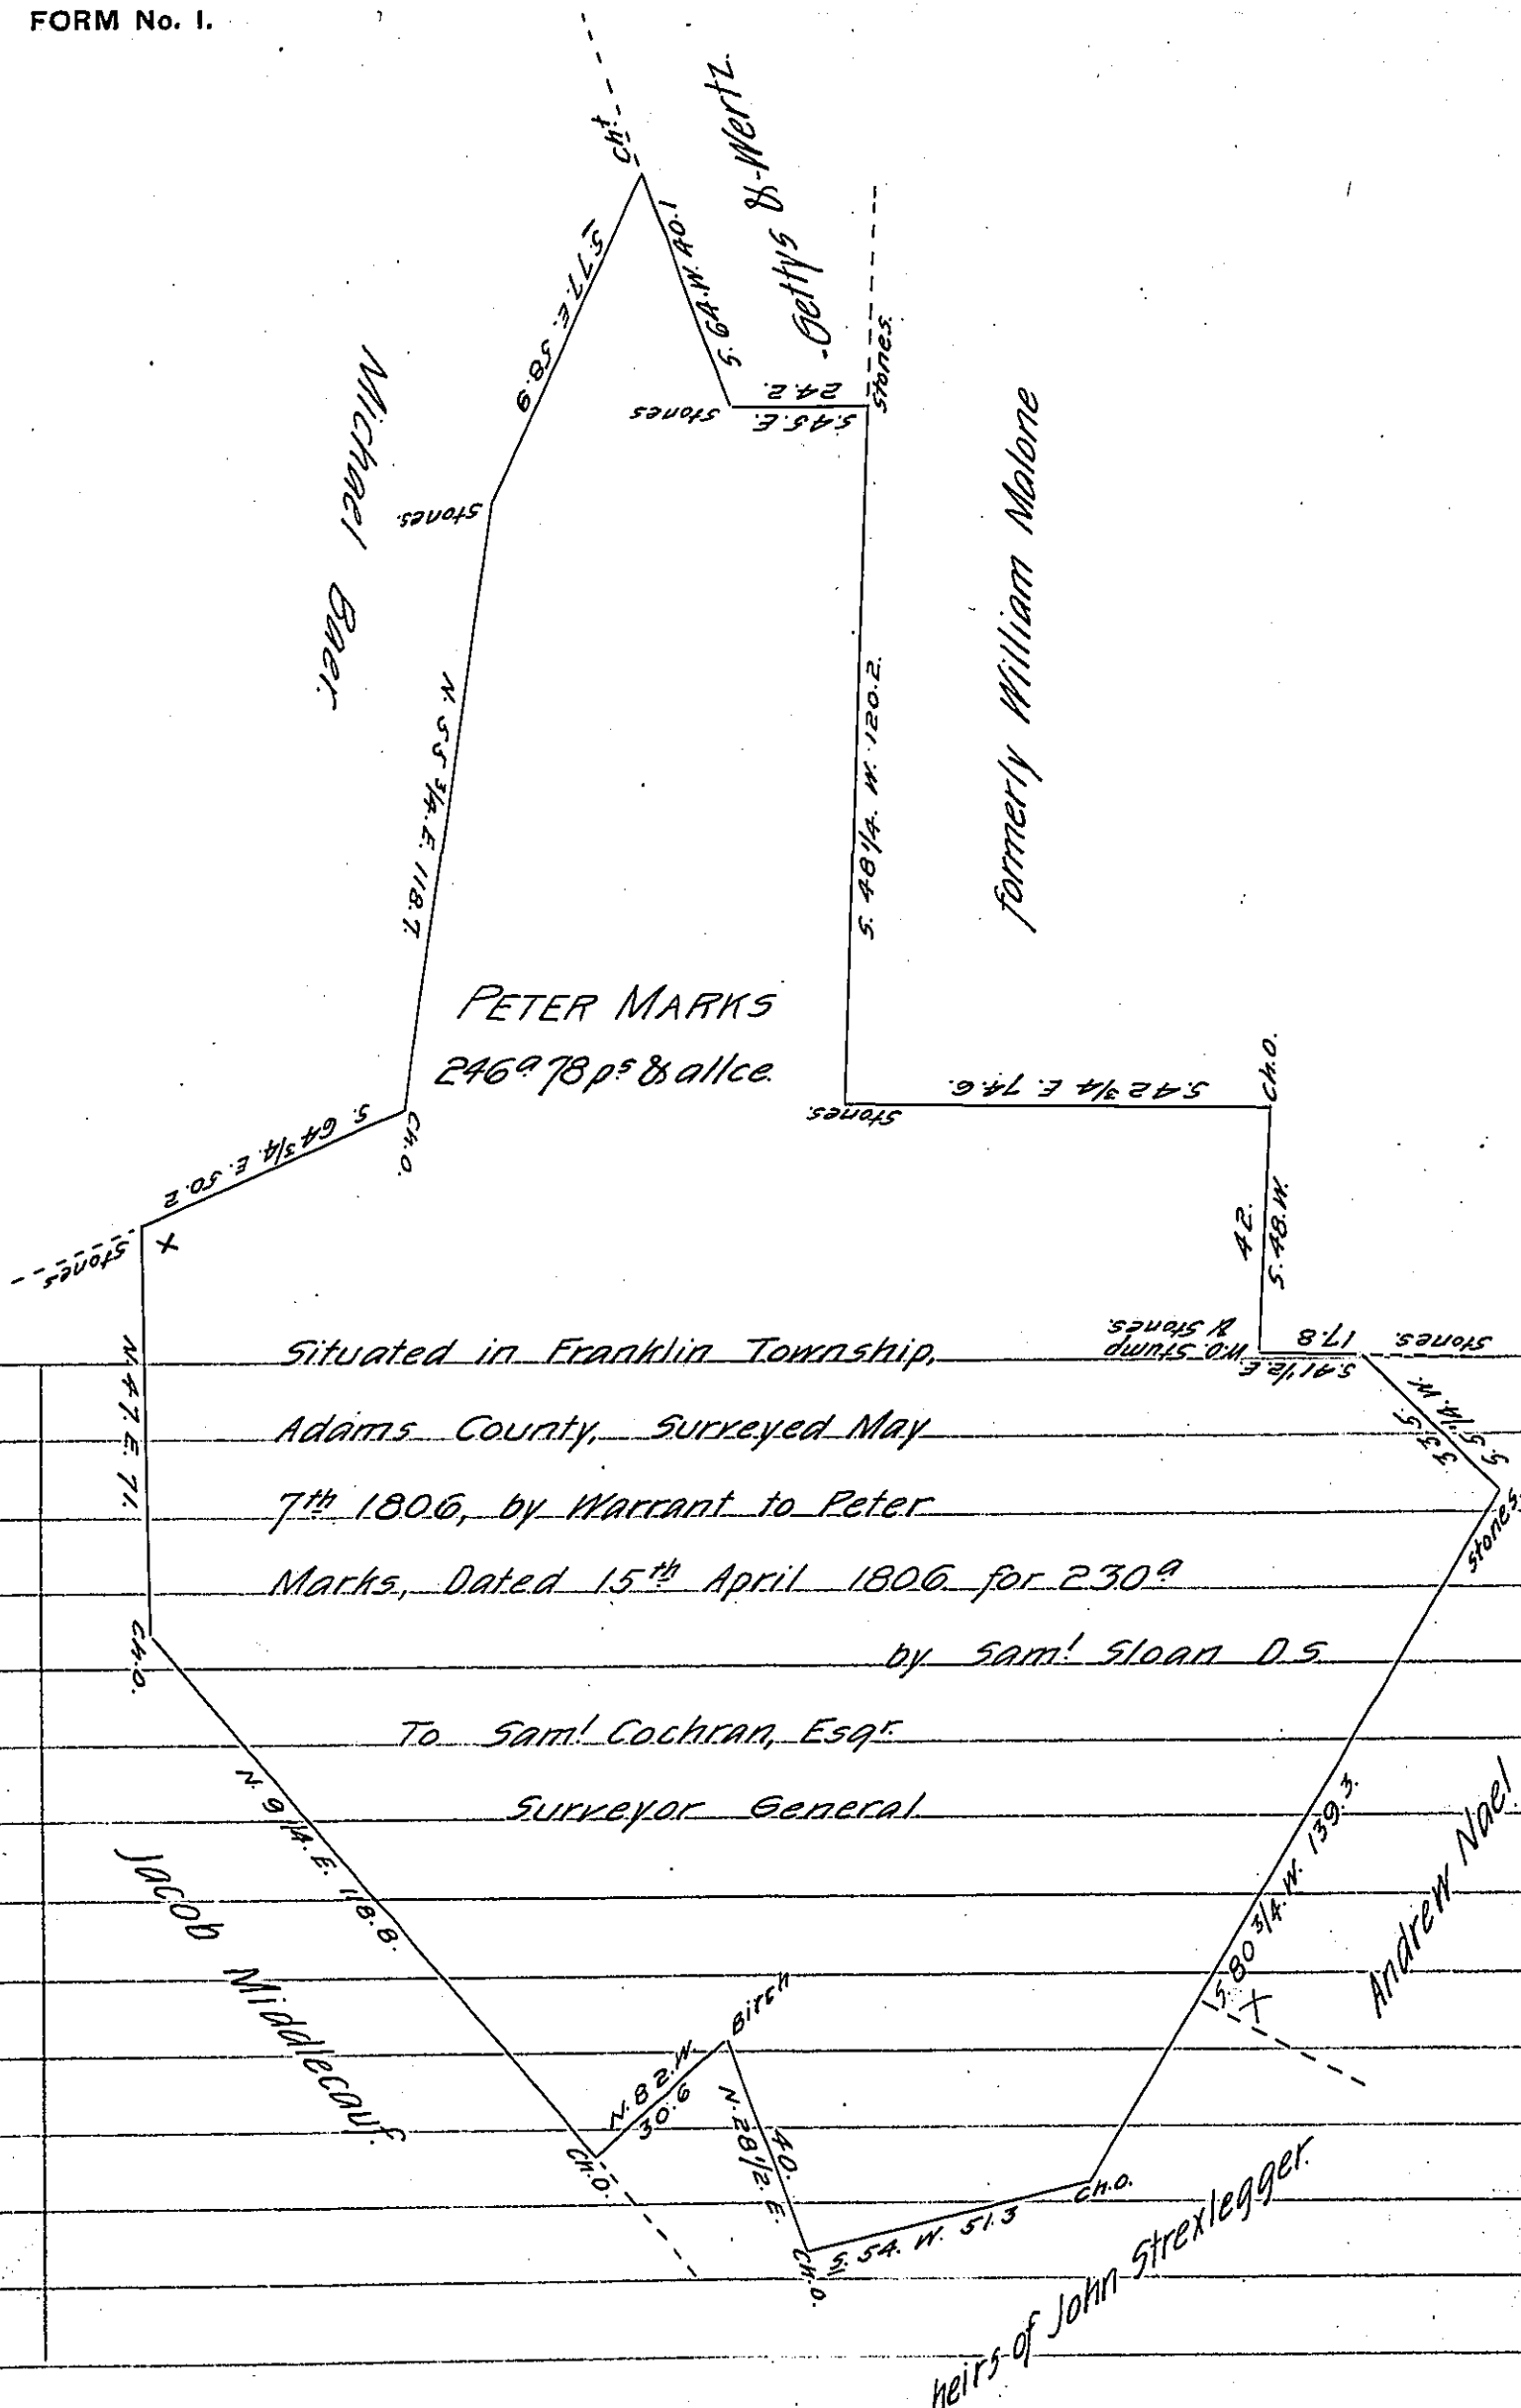 FORM No. 1.
Cht
Gettys & Wertz.
S. 77. E. 58.9
S. 64. W. 40.1
Stones
S. 45. E.
24.2.
Stones.
Michael Baer.
Stones.
formerly William Malone
N. 55 3/4. E. 118.7.
S. 48 1/4. W. 120.2.
PETER MARKS
246a 78 ps & allce.
Stones.
S. 42 3/4 E. 74.6.
Ch.O.
S. 64 3/4. E. 50.2
Ch.O.
Stones
X
42.
S. 48. W.
W.O. Stump
& Stones.
S. 41 1/2 E
17.8
Stones.
N. 47. E. 71.
Situated in Franklin Township,
Adams County, Surveyed May
7th 1806, by Warrant to Peter
Marks, Dated 15th April 1806 for 230a
by Saml Sloan D S
To Saml Cochran, Esqr.
Surveyor General
S. 5 1/4. W.
33.5.
Stones.
Ch.O.
N. 9 1/4. E. 118.8.
Jacob Middlecauf.
S. 80 3/4. W. 139.3.
X
Andrew Nael.
Birch
N. 82. W.
30.6
Ch.O.
N. 28 1/2. E.
40.
Ch.O.
S. 54. W. 51.3
Ch.O.
heirs of John Strexlegger.